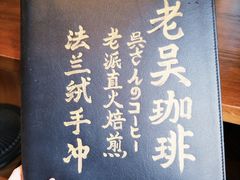 老吴珈琲
呉さんのコーヒー
老派直火焙煎
法兰絨手冲